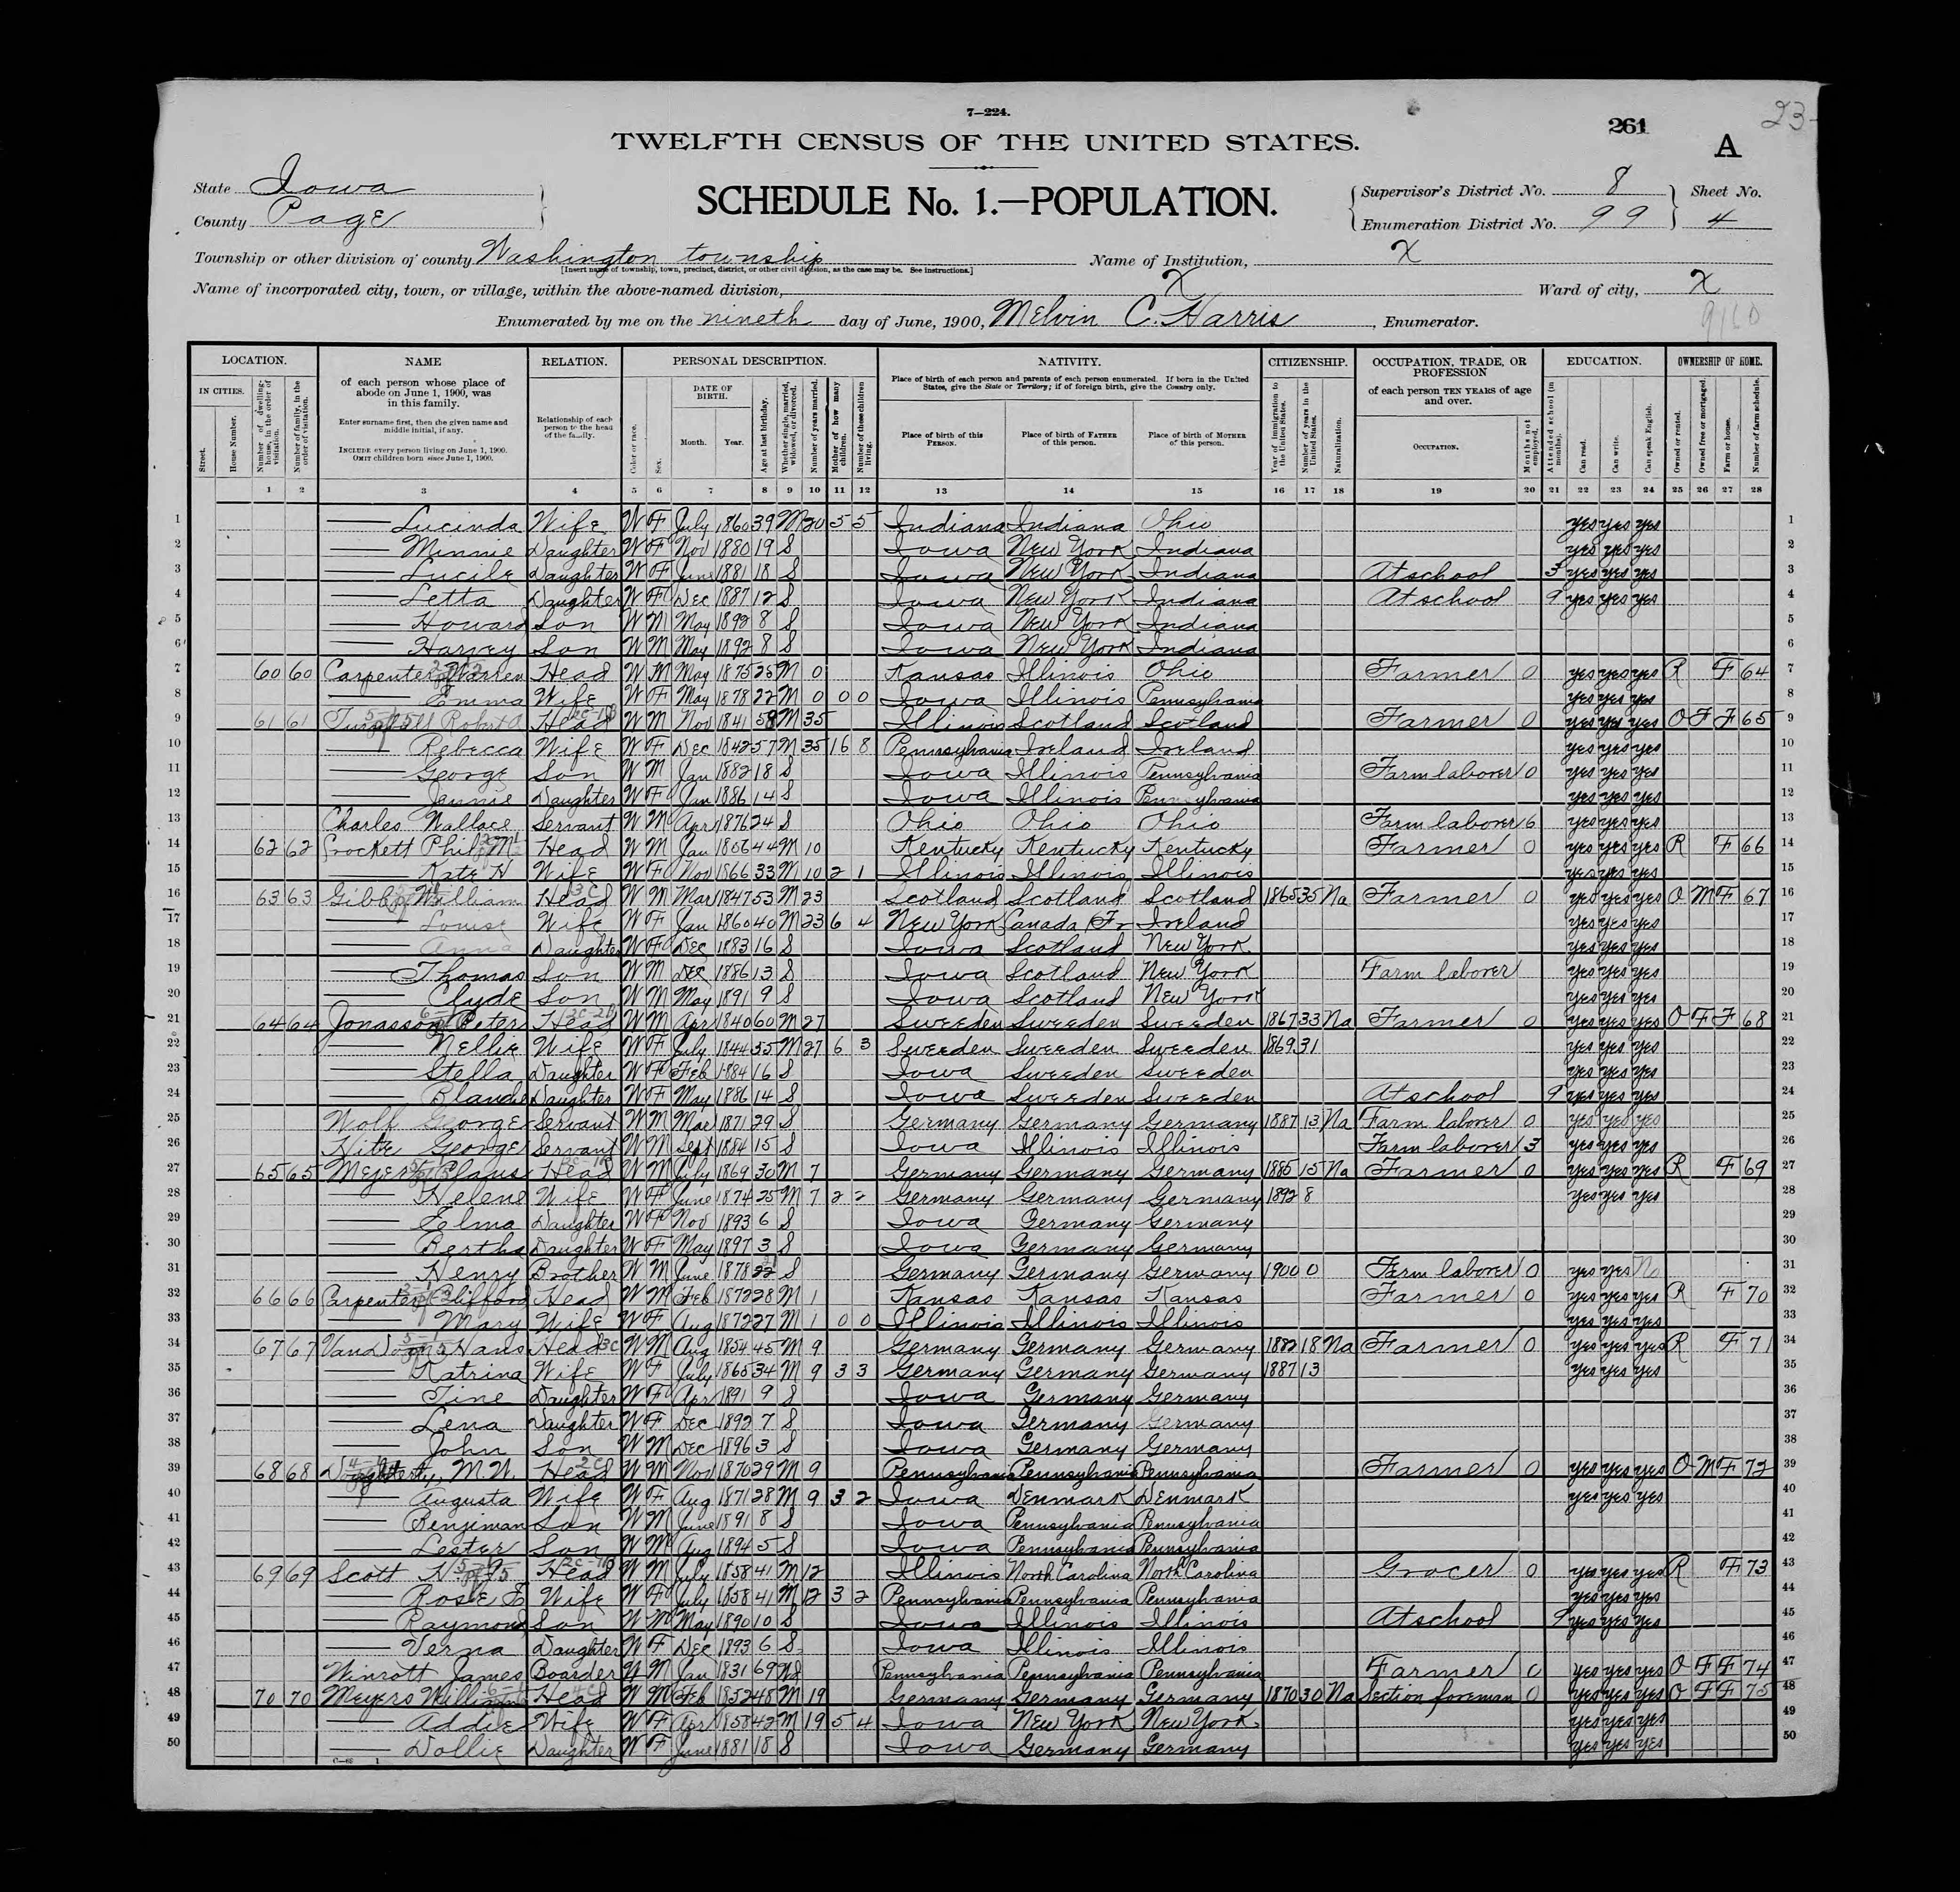 7—224.
23-
261
A
TWELFTH CENSUS OF THE UNITED STATES.
State Iowa
County Page
SCHEDULE No. 1.—POPULATION.
Supervisor's District No. 8
Enumeration District No. 99
Sheet No. 4
Township or other division of county Washington township
[Insert name of township, town, precinct, district, or other civil division, as the case may be. See instructions.]
Name of Institution, X
Name of incorporated city, town, or village, within the above-named division, X
Ward of city, X
Enumerated by me on the nineth day of June, 1900, Melvin C. Harris, Enumerator.
9160
LOCATION. NAME RELATION. PERSONAL DESCRIPTION. NATIVITY. CITIZENSHIP. OCCUPATION, TRADE, OR PROFESSION EDUCATION. OWNERSHIP OF HOME.
IN CITIES. Street. House Number. Number of dwelling-house, in the order of visitation. Number of family, in the order of visitation.
of each person whose place of abode on June 1, 1900, was in this family.
Enter surname first, then the given name and middle initial, if any.
INCLUDE every person living on June 1, 1900. OMIT children born since June 1, 1900.
Relationship of each person to the head of the family.
Color or race. Sex. DATE OF BIRTH. Month. Year. Age at last birthday. Whether single, married, widowed, or divorced. Number of years married. Mother of how many children. Number of these children living.
Place of birth of each person and parents of each person enumerated. If born in the United States, give the State or Territory; if of foreign birth, give the Country only.
Place of birth of this PERSON. Place of birth of FATHER of this person. Place of birth of MOTHER of this person.
Year of immigration to the United States. Number of years in the United States. Naturalization.
of each person TEN YEARS of age and over.
OCCUPATION. Months not employed.
Attended school (in months). Can read. Can write. Can speak English.
Owned or rented. Owned free or mortgaged. Farm or house. Number of farm schedule.
1 2 3 4 5 6 7 8 9 10 11 12 13 14 15 16 17 18 19 20 21 22 23 24 25 26 27 28
1 — Lucinda Wife W F July 1860 39 M 20 5 5 Indiana Indiana Ohio yes yes yes 1
2 — Minnie Daughter W F Nov 1880 19 S Iowa New York Indiana yes yes yes 2
3 — Lucile Daughter W F June 1881 18 S Iowa New York Indiana At school 3 yes yes yes 3
4 — Letta Daughter W F Dec 1887 12 S Iowa New York Indiana At school 9 yes yes yes 4
5 — Howard Son W M May 1892 8 S Iowa New York Indiana 5
6 — Harvey Son W M May 1892 8 S Iowa New York Indiana 6
7 60 60 Carpenter Warren Head W M May 1875 25 M 0 Kansas Illinois Ohio Farmer 0 yes yes yes R F 64 7
8 — Emma Wife W F May 1878 22 M 0 0 0 Iowa Illinois Pennsylvania yes yes yes 8
9 61 61 Robert A Head W M Nov 1841 58 M 35 Illinois Scotland Scotland Farmer 0 yes yes yes O F F 65 9
10 — Rebecca Wife W F Dec 1842 57 M 35 16 8 Pennsylvania Ireland Ireland yes yes yes 10
11 — George Son W M Jan 1882 18 S Iowa Illinois Pennsylvania Farm laborer 0 yes yes yes 11
12 — Jennie Daughter W F Jan 1886 14 S Iowa Illinois Pennsylvania yes yes yes 12
13 Charles Wallace Servant W M Apr 1876 24 S Ohio Ohio Ohio Farm laborer 6 yes yes yes 13
14 62 62 Crockett Philip M Head W M Jan 1856 44 M 10 Kentucky Kentucky Kentucky Farmer 0 yes yes yes R F 66 14
15 — Kate H Wife W F Nov 1866 33 M 10 2 1 Illinois Illinois Illinois yes yes yes 15
16 63 63 Gibb William Head W M Mar 1847 53 M 23 Scotland Scotland Scotland 1865 35 Na Farmer 0 yes yes yes O M F 67 16
17 — Louise Wife W F Jan 1860 40 M 23 6 4 New York Canada Fr Ireland yes yes yes 17
18 — Anna Daughter W F Dec 1883 16 S Iowa Scotland New York yes yes yes 18
19 — Thomas Son W M Dec 1886 13 S Iowa Scotland New York Farm laborer yes yes yes 19
20 — Clyde Son W M May 1891 9 S Iowa Scotland New York yes yes yes 20
21 64 64 Jonasson Peter Head W M Apr 1840 60 M 27 Sweeden Sweeden Sweeden 1867 33 Na Farmer 0 yes yes yes O F F 68 21
22 — Nellie Wife W F July 1844 55 M 27 6 3 Sweeden Sweeden Sweeden 1869 31 yes yes yes 22
23 — Stella Daughter W F Feb 1884 16 S Iowa Sweeden Sweeden yes yes yes 23
24 — Blanche Daughter W F May 1886 14 S Iowa Sweeden Sweeden At school 9 yes yes yes 24
25 Wolf George Servant W M Mar 1871 29 S Germany Germany Germany 1887 13 Na Farm laborer 0 yes yes yes 25
26 Hite George Servant W M Sept 1884 15 S Iowa Illinois Illinois Farm laborer 3 yes yes yes 26
27 65 65 Meyer Claus Head W M July 1869 30 M 7 Germany Germany Germany 1885 15 Na Farmer 0 yes yes yes R F 69 27
28 — Helene Wife W F June 1874 25 M 7 2 2 Germany Germany Germany 1892 8 yes yes yes 28
29 — Elma Daughter W F Nov 1893 6 S Iowa Germany Germany 29
30 — Bertha Daughter W F May 1897 3 S Iowa Germany Germany 30
31 — Henry Brother W M June 1878 22 S Germany Germany Germany 1900 0 Farm laborer 0 yes yes No 31
32 66 66 Carpenter Clifford Head W M Feb 1872 28 M 1 Kansas Kansas Kansas Farmer 0 yes yes yes R F 70 32
33 — Mary Wife W F Aug 1872 27 M 1 0 0 Illinois Illinois Illinois yes yes yes 33
34 67 67 Hans Head W M Aug 1854 45 M 9 Germany Germany Germany 1882 18 Na Farmer 0 yes yes yes R F 71 34
35 — Katrina Wife W F July 1865 34 M 9 3 3 Germany Germany Germany 1887 13 yes yes yes 35
36 — Tine Daughter W F Apr 1891 9 S Iowa Germany Germany 36
37 — Lena Daughter W F Dec 1892 7 S Iowa Germany Germany 37
38 — John Son W M Dec 1896 3 S Iowa Germany Germany 38
39 68 68 M.W. Head W M Nov 1870 29 M 9 Pennsylvania Pennsylvania Pennsylvania Farmer 0 yes yes yes O M F 72 39
40 — Augusta Wife W F Aug 1871 28 M 9 3 2 Iowa Denmark Denmark yes yes yes 40
41 — Benjiman Son W M June 1891 8 S Iowa Pennsylvania Pennsylvania 41
42 — Lester Son W M Aug 1894 5 S Iowa Pennsylvania Pennsylvania 42
43 69 69 Scott Head W M July 1858 41 M 12 Illinois North Carolina North Carolina Grocer 0 yes yes yes R F 73 43
44 — Rose E Wife W F July 1858 41 M 12 3 2 Pennsylvania Pennsylvania Pennsylvania yes yes yes 44
45 — Raymond Son W M May 1890 10 S Iowa Illinois Illinois At school 9 yes yes yes 45
46 — Verna Daughter W F Dec 1893 6 S Iowa Illinois Illinois 46
47 Winrott James Boarder W M Jan 1831 69 Wd Pennsylvania Pennsylvania Pennsylvania Farmer 0 yes yes yes O F F 74 47
48 70 70 Meyers William Head W M Feb 1852 48 M 19 Germany Germany Germany 1870 30 Na Section foreman 0 yes yes yes O F F 75 48
49 — Addie Wife W F Apr 1858 42 M 19 5 4 Iowa New York New York yes yes yes 49
50 — Dollie Daughter W F June 1881 18 S Iowa Germany Germany yes yes yes 50